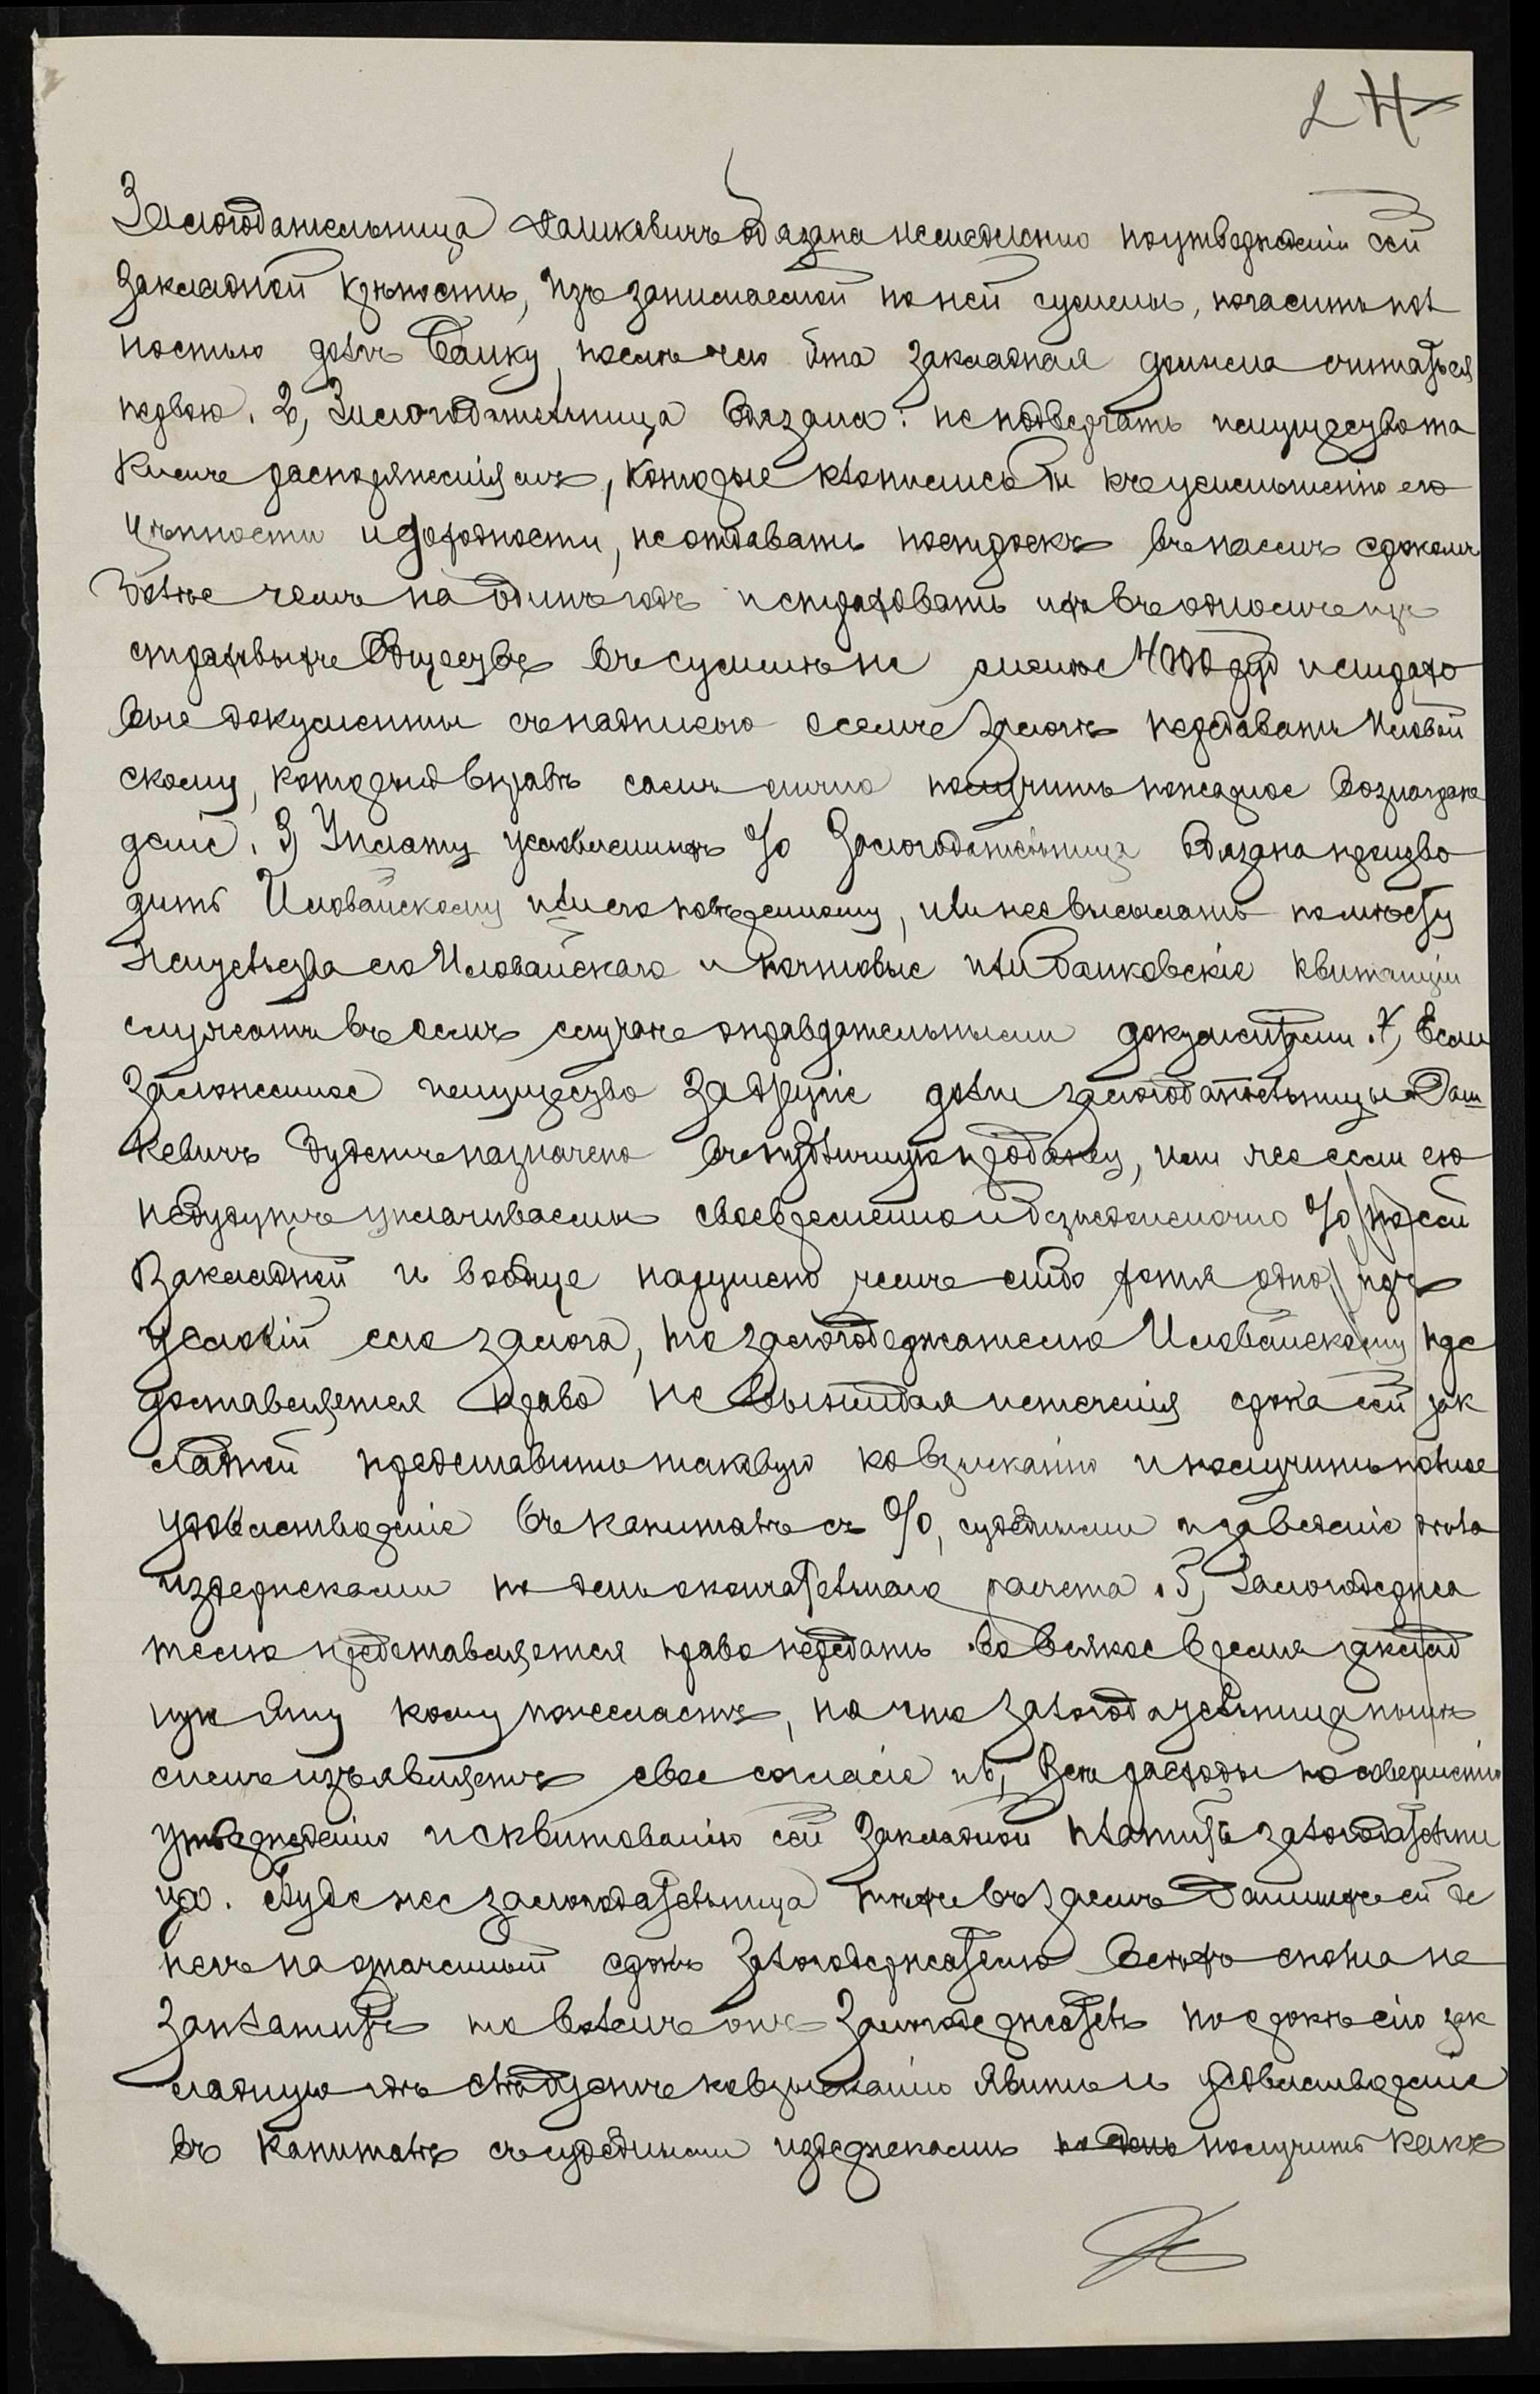 2 4
Залогодательница Дашкевичъ обязана немедленно по утвержденіи сей
закладной крѣпости, изъ занимаемой по ней суммы, погасить пол
ностью долгъ Банку, послѣ чего эта закладная должна считаться
первою. 2, Залогодательница обязана: не подвергать имущество та
кимъ распоряженіямъ, которые клонились бы къ уменьшенію его
цѣнности и доходности, не отдавать построекъ въ наемъ срокомъ
болѣе чемъ на одинъ годъ и страховать ихъ въ одномъ изъ
страховыхъ Обществъ въ суммѣ не менѣе 4000 руб и страхо
вые документы съ надписью о семъ залогѣ передавать Иловай
скому, который вправѣ самъ лично получить пожарное вознагра
деніе. 3, Уплату условленныхъ % Залогодательница обязана произво
дить Иловайскому или его повѣренному, или же высылать по мѣсту
жительства его Иловайскаго и почтовые или банковскіе квитанціи
служатъ въ семъ случаѣ оправдательными документами. 4, Если
заложенное имущество за другіе долги залогодательницы Даш
кевичъ будетъ назначено въ публичную продажу, или же если ею
не будутъ уплачиваемы своевременно и безъ недоимочно % по сей
закладной и вообще нарушено чемъ либо хотя одно изъ
условій сего залога, то залогодержателю Иловайскому пре
доставляется право не выжидая истеченія срока сей зак
ладной представить таковую ко взысканію и получить полное
удовлетвореніе въ капиталѣ съ %, судебными и за веденіе дѣла
издержками по день окончательнаго расчета. 5, Залогодержа
телю предоставляется право передать во всякое время заклад
ную эту кому пожелаетъ, на что залогодательница нынѣ
симъ изъявляетъ свое согласіе и 6, Всѣ расходы по совершенію
утвержденію и сквитованію сей закладной платитъ залогодательни
ца. Буде же залогодательница тѣхъ въ заемъ данныхъ ей де
негъ на означенный срокъ Залогодержателю всѣхъ сполна не
заплатитъ то воленъ онъ Залогодержатель по срокѣ сію зак
ладную гдѣ слѣдуетъ ко взысканію явить и удовлетвореніе
въ капиталѣ съ судебными издержками по день получить какъ